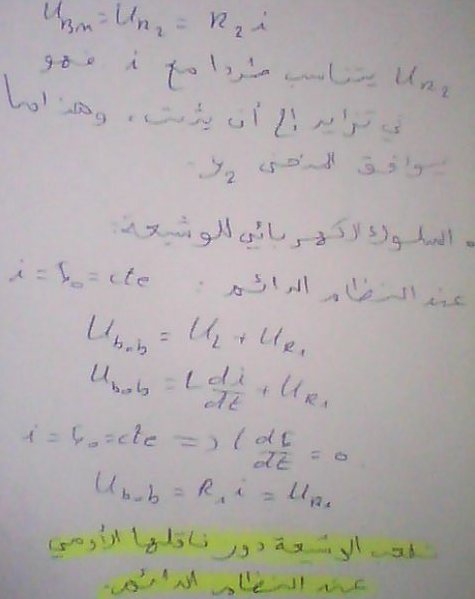 U_BM = U_R2 = R2 i
U_R2 يتناسب طردا مع i فهو
في تزايد إلى أن يثبت، وهذا ما
يوافق المنحنى y2.
• السلوك الكهربائي للوشيعة:
عند النظام الدائم : i = I0 = cte
U_bob = U_L + U_R1
U_bob = L di/dt + U_R1
i = I0 = cte => L di/dt = 0
U_bob = R1 i = U_R1
تلعب الوشيعة دور ناقلها الأومي
عند النظام الدائم.